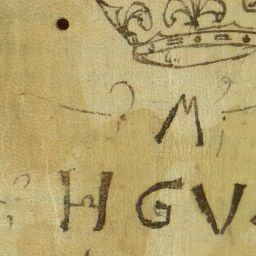 M
HGV